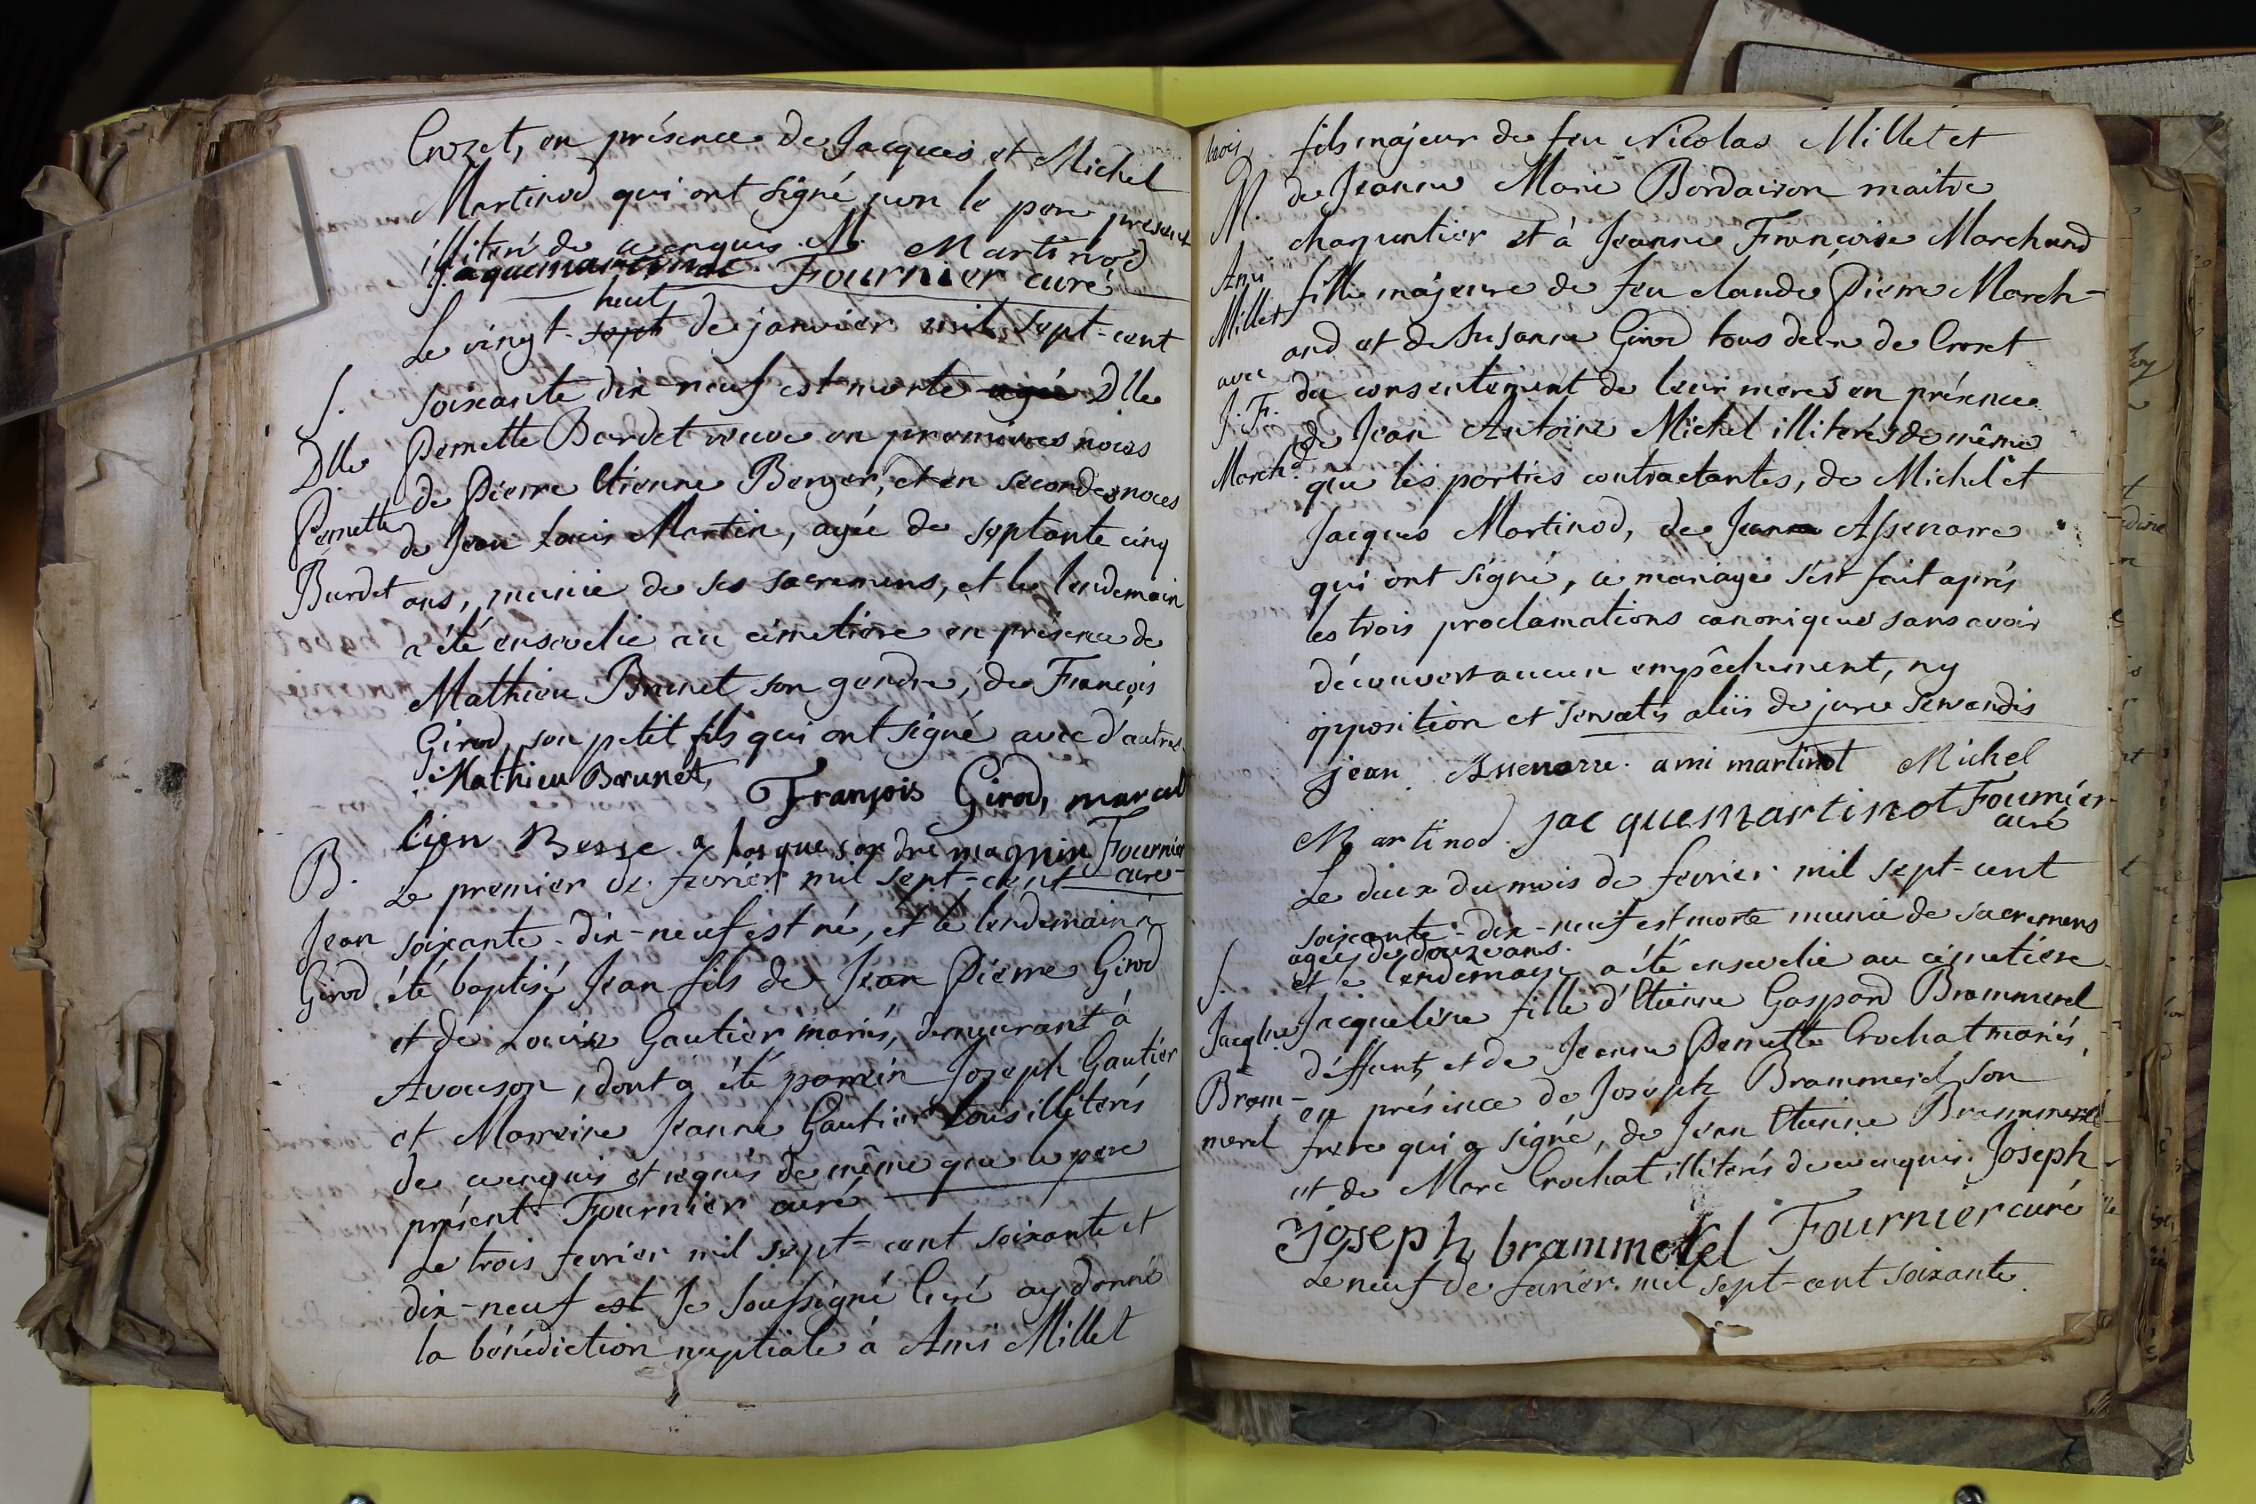 Crozet, en présence de Jacques et Michel
Martinod qui ont signé non le pere présent
illiteré de ce enquis. M. Martinod
Jaquemartinot Fournier curé
huit
Le vingt-sept de janvier mil sept-cent
S. soixante dix-neuf est morte agée Dlle
Dlle Pernette Burdet veuve en premieres noces
Pernette de Pierre Etienne Berger, et en secondes noces
de Jean Louis Martin, agée de septante cinq
Burdet ans, munie de ses sacremens, et le lendemain
a été ensevelie au cimetière en présence de
Mathieu Brunet son gendre, de François
Girod, son petit fils qui ont signé avec d'autres
Mathieu Brunet, François Girod, marcel
lien Besse Fournier
curé
B. Le premier de fevrier mil sept-cent
Jean soixante-dix-neuf est né, et le lendemain à
Girod été baptisé Jean fils de Jean Pierre Girod
et de Louise Gautier mariés, demeurant à
Avouson, dont a été parrein Joseph Gautier
et Marreine Jeanne Gautier tous illiterés
de ce enquis et requis de même que le pere
présent Fournier curé
Le trois fevrier mil sept-cent soixante et
dix-neuf est Je soussigné Curé ay donné
la bénédiction nuptiale à Ami Millet
fils majeur de feu Nicolas Millet et
M. de Jeanne Marie Bordairon maitre
charpentier et à Jeanne Françoise Marchand
Ami fille majeure de feu claude Pierre March-
Millet and et de Susanne Girod tous deux de Crozet
avec du consentement de leur meres en présence
J. F. de Jean Antoine Michel illiterés de même
March.d que les parties contractantes, de Michel et
Jacques Martinod, de Jean Assenarre
qui ont signé, ce mariage s'est fait après
les trois proclamations canoniques sans avoir
découvert aucun empêchement, ny
opposition et servatis aliis de jure servandis
jean Assenarre. ami martinot Michel
Martinod. jacquemartinot Fournier
curé
Le deux du mois de fevrier mil sept-cent
soixante-dix-neuf est morte munie de sacremens
agée de douze ans.
S. et le lendemain a été ensevelie au cimetière
Jacqlne Jacqueline fille d'Etienne Gaspard Brammerel
déffunt et de Jeanne Pernette Crochat mariés,
Bram- en présence de Joseph Brammerel son
merel frere qui a signé, de Jean Etienne Brammerel
et de Marc Crochat illiterés de ce enquis. Joseph
joseph brammerel Fournier curé
Le neuf de fevrier mil sept-cent soixante